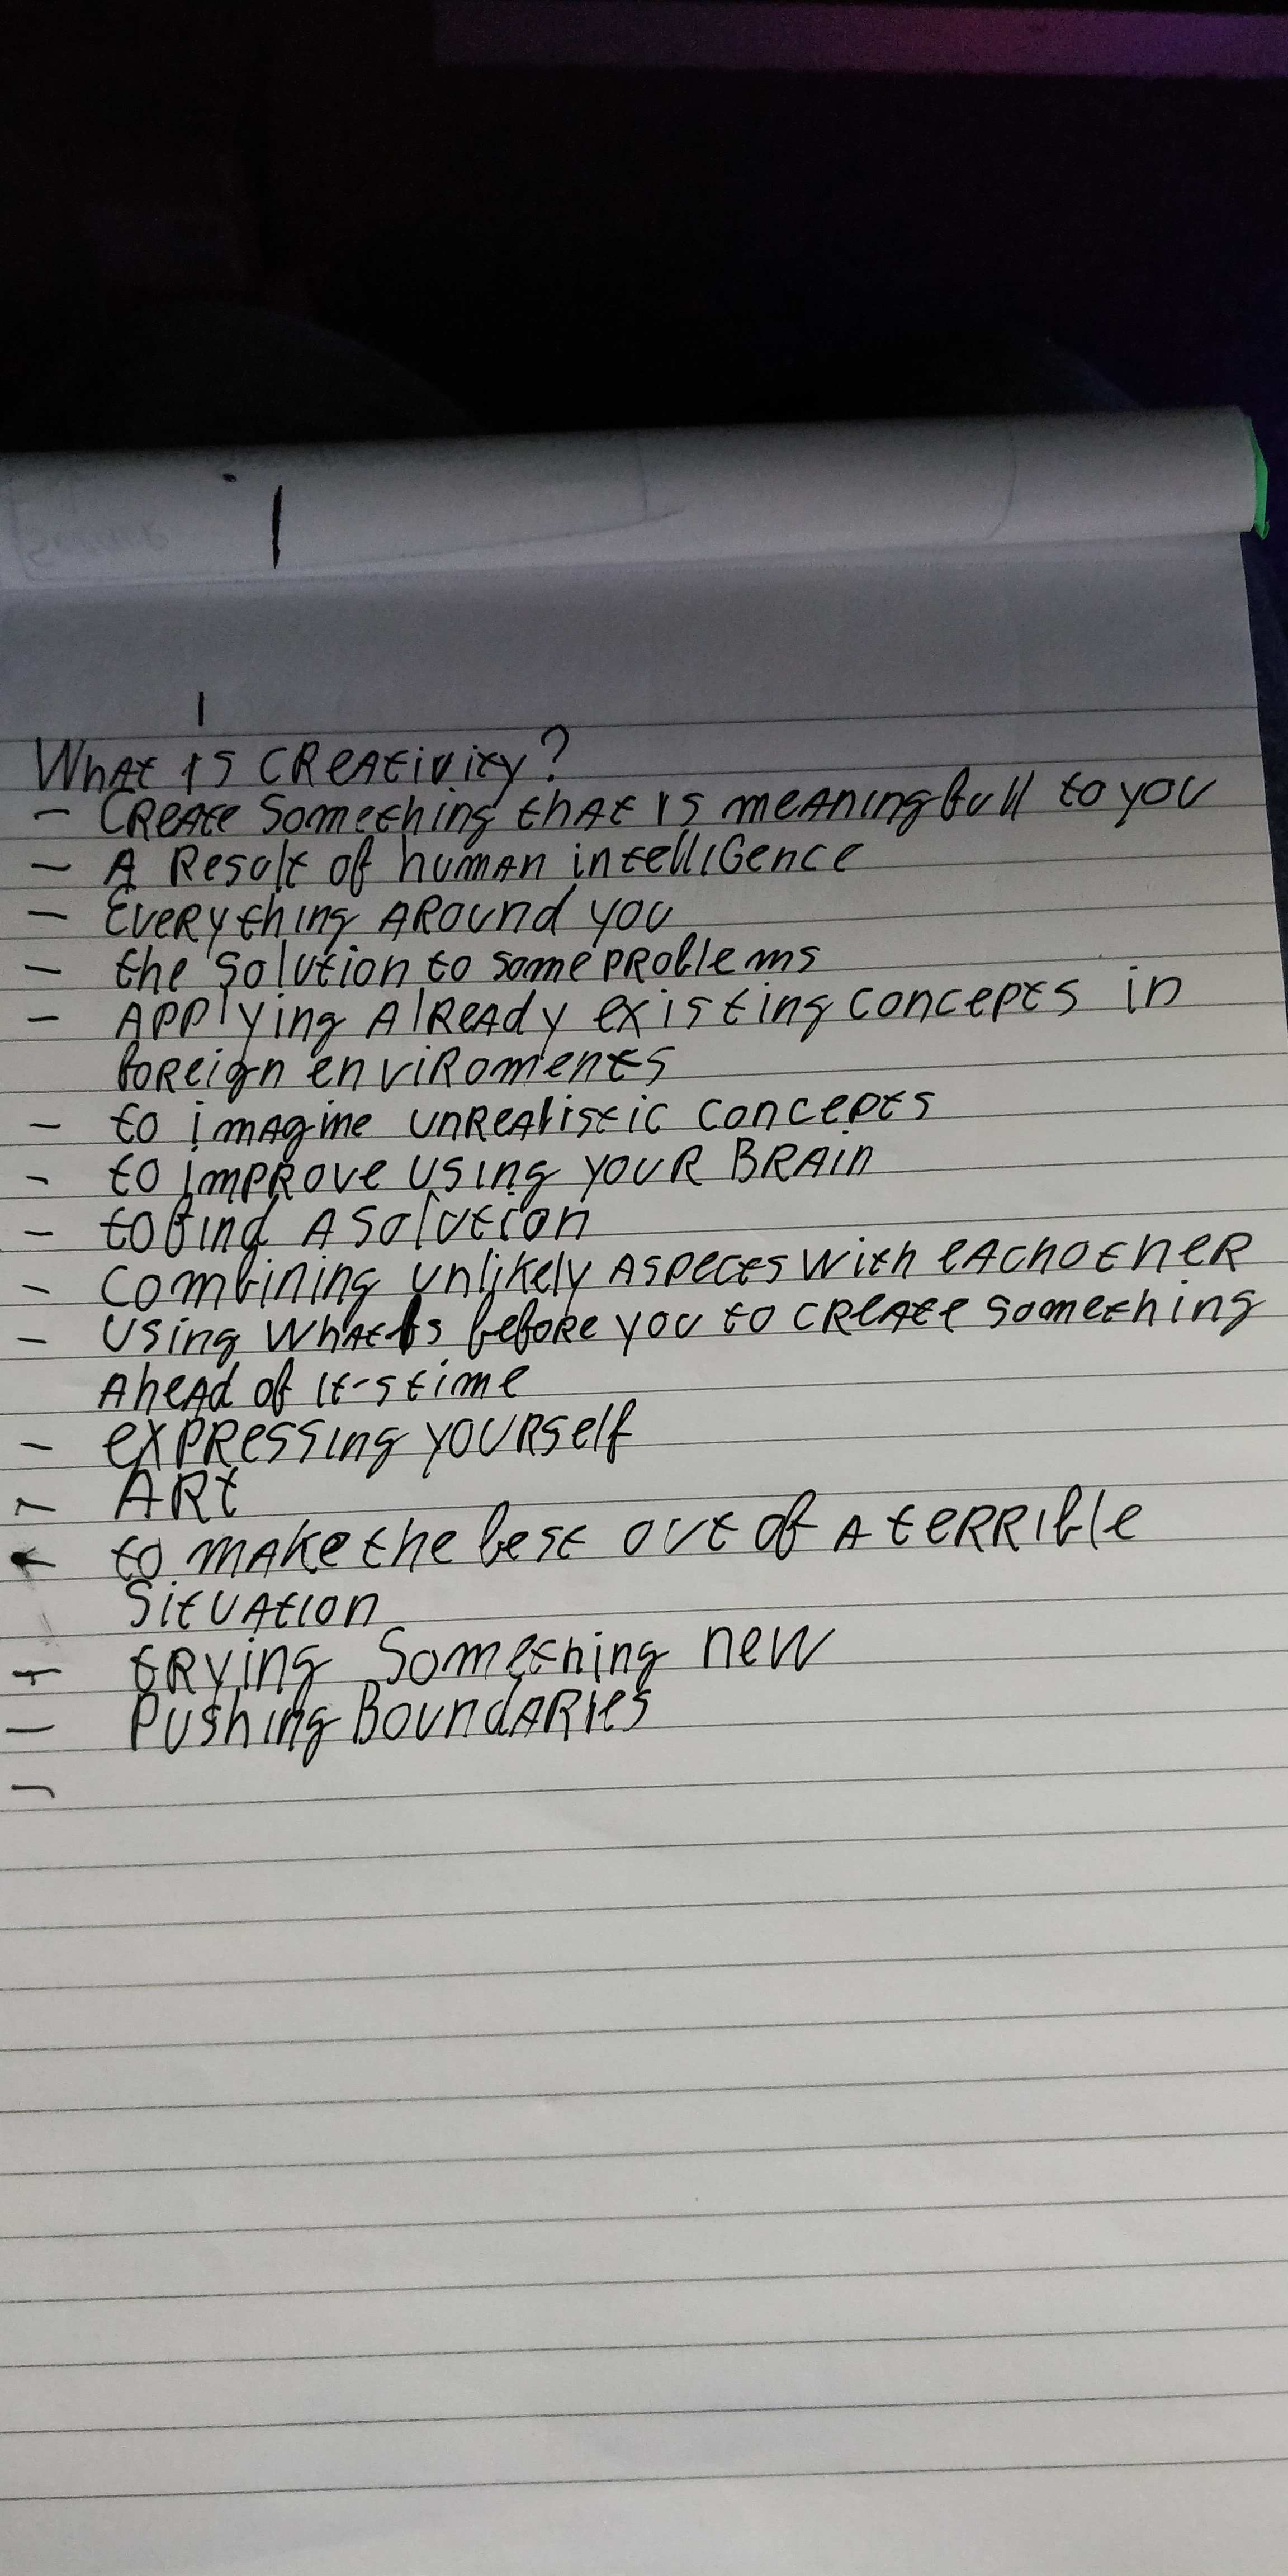 What is creativity?
- Create something that is meaningfull to you
- A Result of human intelligence
- Everything Around you
- the solution to some problems
- Applying Already existing concepts in
foreign enviroments
- to imagine unrealistic concepts
- to improve using your Brain
- to find A solution
- Combining unlikely Aspects with eachother
- Using what is before you to create something
Ahead of it-s time
- expressing yourself
- Art
- to make the best out of A terrible
Situation
- trying Something new
- Pushing Boundaries
-